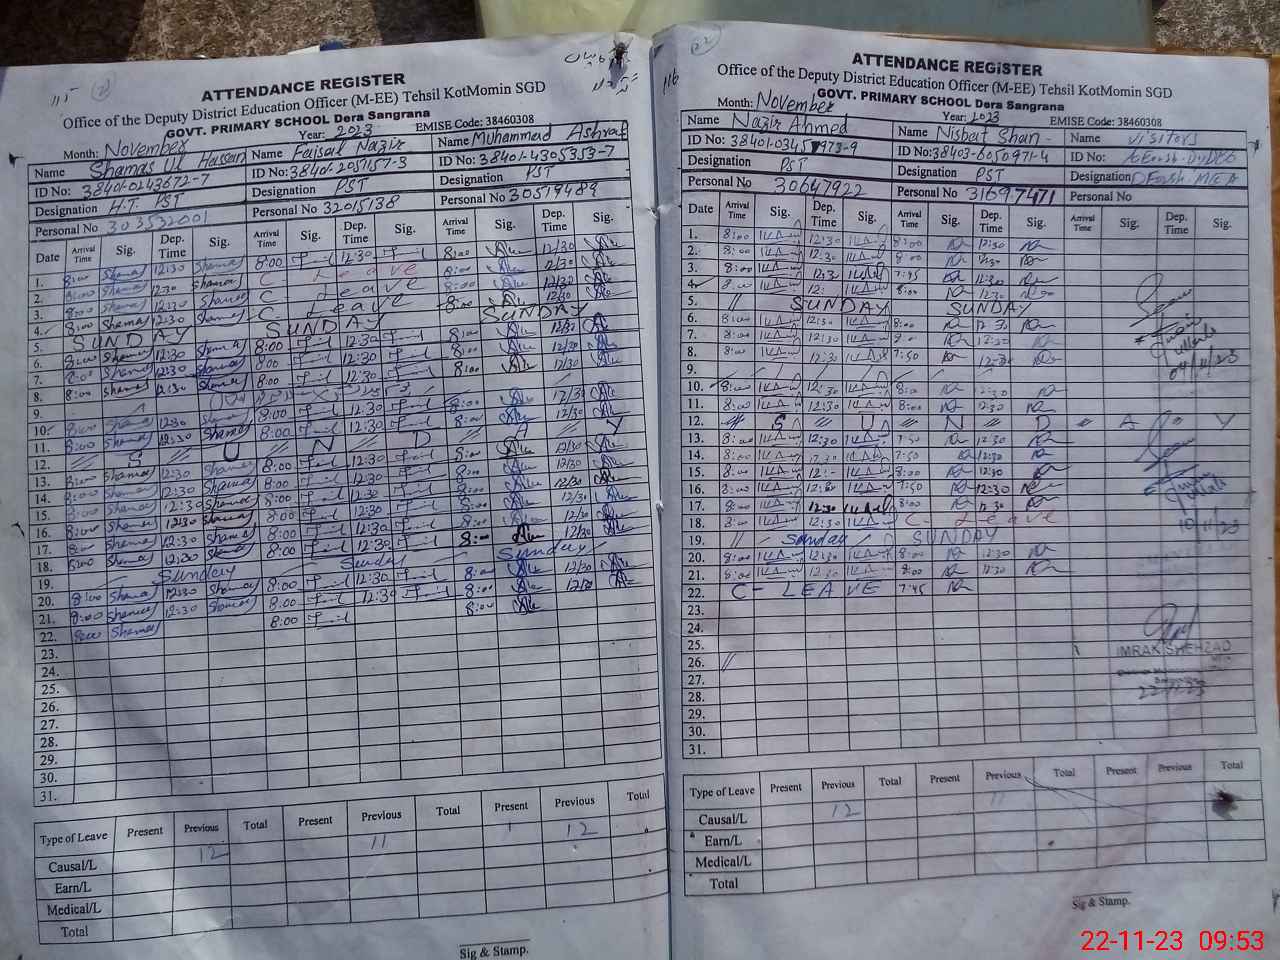 115
ATTENDANCE REGISTER
Office of the Deputy District Education Officer (M-EE) Tehsil KotMomin SGD
GOVT. PRIMARY SCHOOL Dera Sangrana
Month: November Year: 2023 EMISE Code: 38460308
Name Shamas Ul Hassan Name Faisal Nazir Name Muhammad Ashraf
ID No: 38401-0243672-7 ID No: 38401-2051157-3 ID No: 38401-4305353-7
Designation H.T. PST Designation PST Designation PST
Personal No 303532001 Personal No 32015138 Personal No 30519489
Date Arrival Time Sig. Dep. Time Sig. Arrival Time Sig. Dep. Time Sig. Arrival Time Sig. Dep. Time Sig.
1. 8:00 Shamas 12:30 Shamas 8:00 12:30 8:00 12/30
2. 8:00 Shamas 12:30 Shamas C Leave 8:00 12/30
3. 8:00 Shamas 12:30 Shamas C Leave 8:00 12/30
4. 8:00 Shamas 12:30 Shamas C. Leave 8:00 12/30
5. SUNDAY SUNDAY SUNDAY
6. 8:00 Shamas 12:30 Shamas 8:00 12:30 8:00 12/30
7. 8:00 Shamas 12:30 Shamas 8:00 12:30 8:00 12/30
8. 8:00 Shamas 12:30 Shamas 8:00 12:30 8:00 12/30
9.
10. 8:00 Shamas 12:30 Shamas 8:00 12:30 8:00 12/30
11. 8:00 Shamas 12:30 Shamas 8:00 12:30 8:00 12/30
12. S U N D A Y
13. 8:00 Shamas 12:30 Shamas 8:00 12:30 8:00 12/30
14. 8:00 Shamas 12:30 Shamas 8:00 12:30 8:00 12/30
15. 8:00 Shamas 12:30 Shamas 8:00 12:30 8:00 12/30
16. 8:00 Shamas 12:30 Shamas 8:00 12:30 8:00 12/30
17. 8:00 Shamas 12:30 Shamas 8:00 12:30 8:00 12/30
18. 8:00 Shamas 12:30 Shamas 8:00 12:30 8:00 12/30
19. Sunday Sunday Sunday
20. 8:00 Shamas 12:30 Shamas 8:00 12:30 8:00 12/30
21. 8:00 Shamas 12:30 Shamas 8:00 12:30 8:00 12/30
22. 8:00 Shamas 8:00 8:00
23.
24.
25.
26.
27.
28.
29.
30.
31.
Type of Leave Present Previous Total Present Previous Total Present Previous Total
Causal/L 12 11 12
Earn/L
Medical/L
Total
Sig & Stamp.
116
22
ATTENDANCE REGISTER
Office of the Deputy District Education Officer (M-EE) Tehsil KotMomin SGD
GOVT. PRIMARY SCHOOL Dera Sangrana
Month: November Year: 2023 EMISE Code: 38460308
Name Nazir Ahmed Name Nisbat Shan Name Visitors
ID No: 38401-0345973-9 ID No: 38403-6050971-4 ID No:
Designation PST Designation PST Designation
Personal No 30647922 Personal No 31697471 Personal No
Date Arrival Time Sig. Dep. Time Sig. Arrival Time Sig. Dep. Time Sig. Arrival Time Sig. Dep. Time Sig.
1. 8:00 12:30 8:00 12:30
2. 8:00 12:30 8:00 12:30
3. 8:00 12:30 7:45 12:30
4. 8:00 12: 8:00 12:30
5. SUNDAY SUNDAY
6. 8:00 12:30 8:00 12:30
7. 8:00 12:30 12:30
8. 8:00 12:30 7:50 12:30
04/11/23
9.
10. 8:00 12:30 8:00 12:30
11. 8:00 12:30 8:00 12:30
12. S U N D A Y
13. 8:00 12:30 7:50 12:30
14. 8:00 12:30 7:50 12:30
15. 8:00 12: 8:00 12:30
16. 8:00 12:30 7:50 12:30
17. 8:00 12:30 8:00 12:30
18. 8:00 12:30 C- Leave
10/11/23
19. Sunday SUNDAY
20. 8:00 12:30 8:00 12:30
21. 8:00 12:30 8:00 12:30
22. C- LEAVE 7:45
23.
24.
25.
IMRAK SHEHZAD
26.
27.
22-11-23
28.
29.
30.
31.
Type of Leave Present Previous Total Present Previous Total Present Previous Total
Causal/L 12 11
Earn/L
Medical/L
Total
Sig & Stamp.
22-11-23 09:53